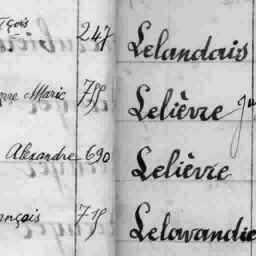 çois 247 Lelandais
rre Marie 75 Lelièvre
Alexandre 690 Lelièvre
ançois 715 Lelavandie